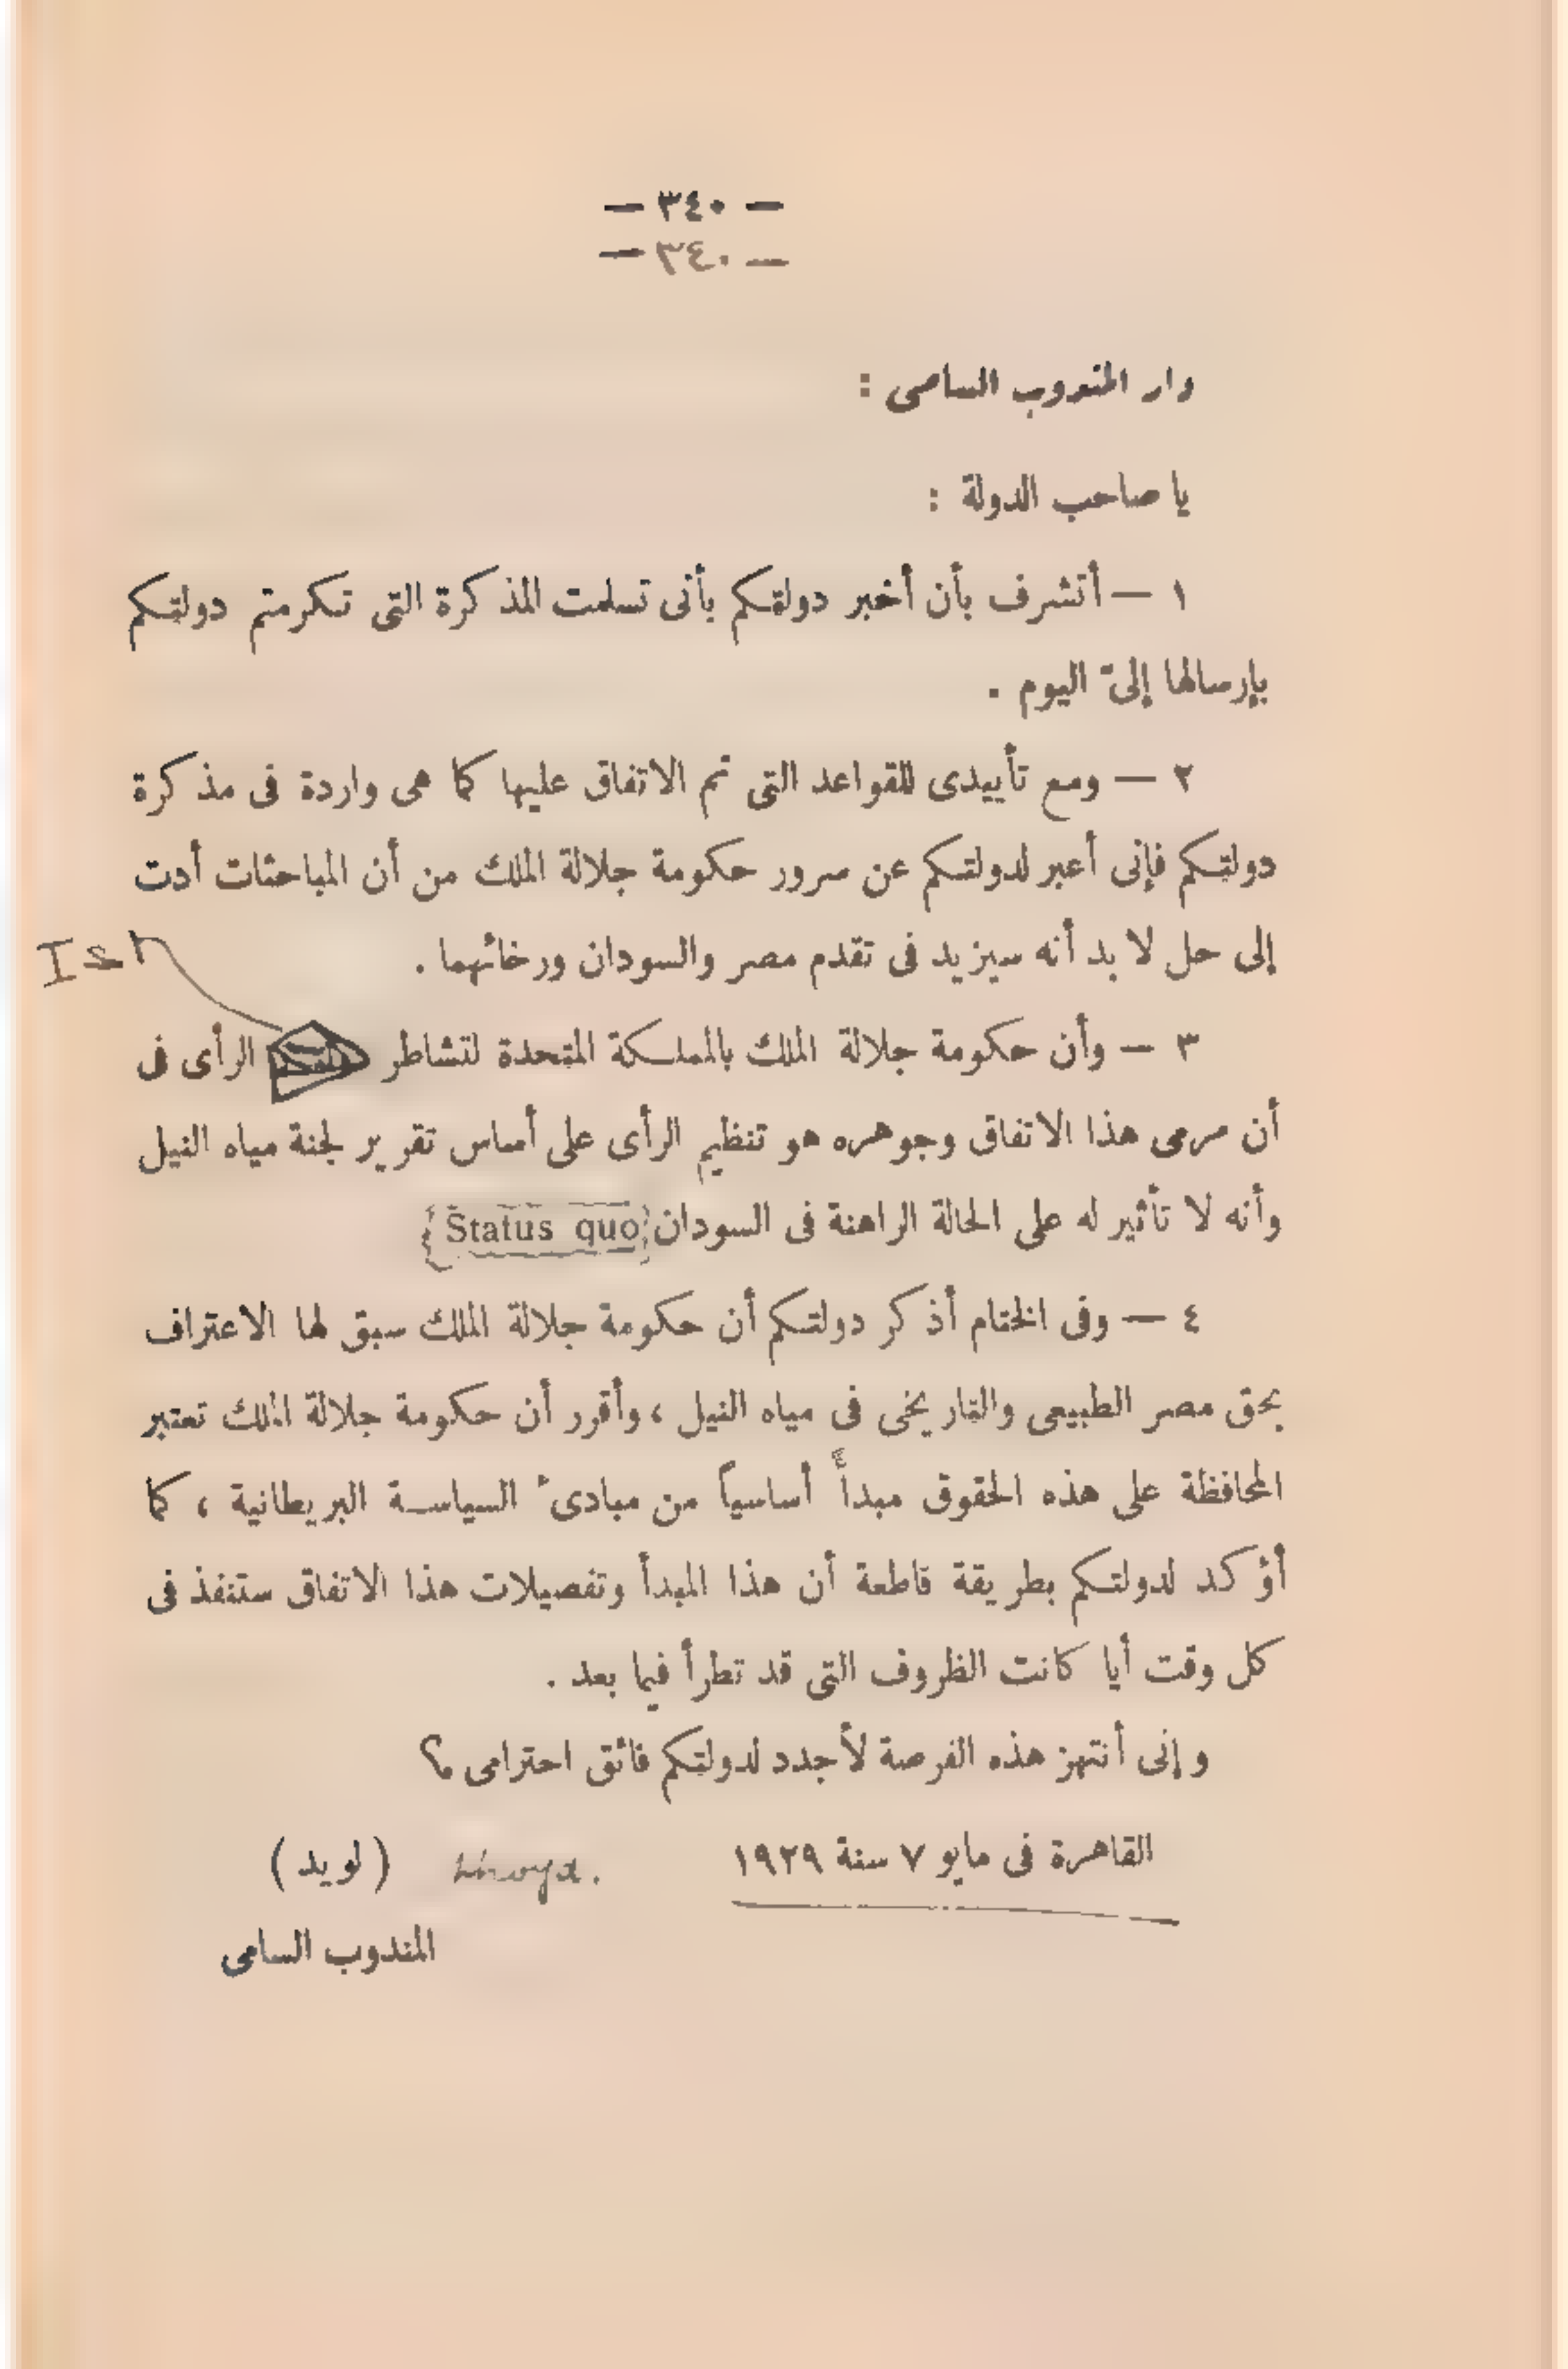 — ٣٤٠ —
— ٣٤٠ —
دار المندوب السامى :
يا صاحب الدولة :
١ — أتشرف بأن أخبر دولتكم بأنى تسلمت المذكرة التى تكرمتم دولتكم
بإرسالها إلىّ اليوم .
٢ — ومع تأييدى للقواعد التى تم الاتفاق عليها كما هى واردة فى مذكرة
دولتكم فإنى أعبر لدولتكم عن سرور حكومة جلالة الملك من أن المباحثات أدت
إلى حل لا بد أنه سيزيد فى تقدم مصر والسودان ورخائهما .
٣ — وأن حكومة جلالة الملك بالمملكة المتحدة لتشاطر الرأى فى
أن مرمى هذا الاتفاق وجوهره هو تنظيم الرأى على أساس تقرير لجنة مياه النيل
وأنه لا تأثير له على الحالة الراهنة فى السودان Status quo
٤ — وفى الختام أذكر دولتكم أن حكومة جلالة الملك سبق لها الاعتراف
بحق مصر الطبيعى والتاريخى فى مياه النيل ، وأقرر أن حكومة جلالة الملك تعتبر
المحافظة على هذه الحقوق مبدأً أساسياً من مبادىء السياسة البريطانية ، كما
أؤكد لدولتكم بطريقة قاطعة أن هذا المبدأ وتفصيلات هذا الاتفاق ستنفذ فى
كل وقت أيا كانت الظروف التى قد تطرأ فيما بعد .
وإنى أنتهز هذه الفرصة لأجدد لدولتكم فائق احترامى ؟
القاهرة فى مايو ٧ سنة ١٩٢٩ (لويد)
المندوب السامى